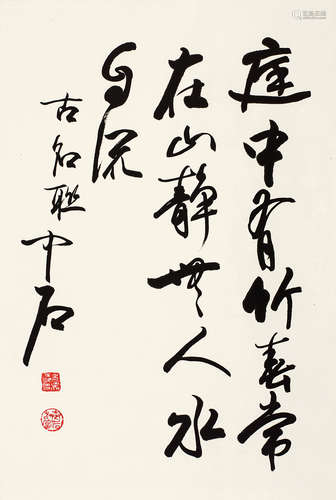 庭中有竹春常
在山静无人水
自流
古名联中石